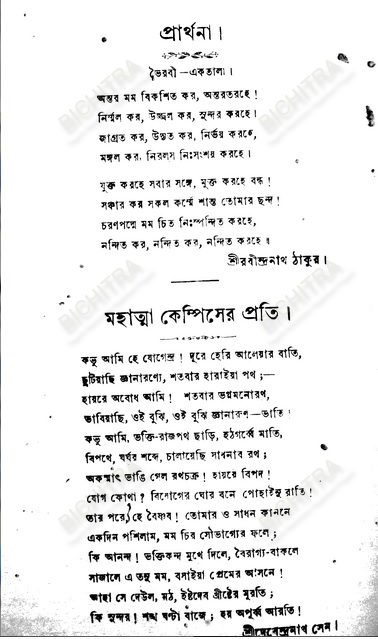 প্রার্থনা।
ভৈরবী—একতালা।
অন্তর মম বিকশিত কর, অন্তরতরহে!
নির্ম্মল কর, উজ্জ্বল কর, সুন্দর করহে।
জাগ্রত কর, উদ্যত কর, নির্ভয় করহে,
মঙ্গল কর, নিরলস নিঃসংশয় করহে।
যুক্ত করহে সবার সঙ্গে, মুক্ত করহে বন্ধ!
সঞ্চার কর সকল কর্ম্মে শান্ত তোমার ছন্দ!
চরণপদ্মে মম চিত নিঃস্পন্দিত করহে,
নন্দিত কর, নন্দিত কর, নন্দিত করহে॥
শ্রীরবীন্দ্রনাথ ঠাকুর।
মহাত্মা কেম্পিসের প্রতি।
কভু আমি হে যোগেন্দ্র! দূরে হেরি আলেয়ার বাতি,
ছুটিয়াছি জ্ঞানারণ্যে, শতবার হারাইয়া পথ;—
হায়রে অবোধ আমি! শতবার ভগ্নমনোরথ,
ভাবিয়াছি, ওই বুঝি, ওই বুঝি জ্ঞানারুণ—ভাতি!
কভু আমি, ভক্তি-রাজপথ ছাড়ি, হঠগর্ব্বে মাতি,
বিপথে, ঘর্ঘর শব্দে, চালায়েছি সাধনার রথ;
অকস্মাৎ ভাঙি গেল রথচক্র! হায়রে বিপদ!
যোগ কোথা? বিয়োগের ঘোর বনে পোহাইনু রাতি!
তার পরে, হে বৈষ্ণব! তোমার ও সাধন কাননে
একদিন পশিলাম, মম চির সৌভাগ্যের ফলে;
কি আনন্দ! ভক্তিকন্দ মুখে দিলে, বৈরাগ্য-বাকলে
সাজালে এ তনু মম, বসাইয়া প্রেমের আসনে!
আহা সে দেউল, মঠ, ইষ্টদেব খ্রীষ্টের মূরতি;
কি সুন্দর! শঙ্খ ঘন্টা বাজে; হয় অপূর্ব্ব আরতি!
শ্রীদেবেন্দ্রনাথ সেন।
BICHITRA